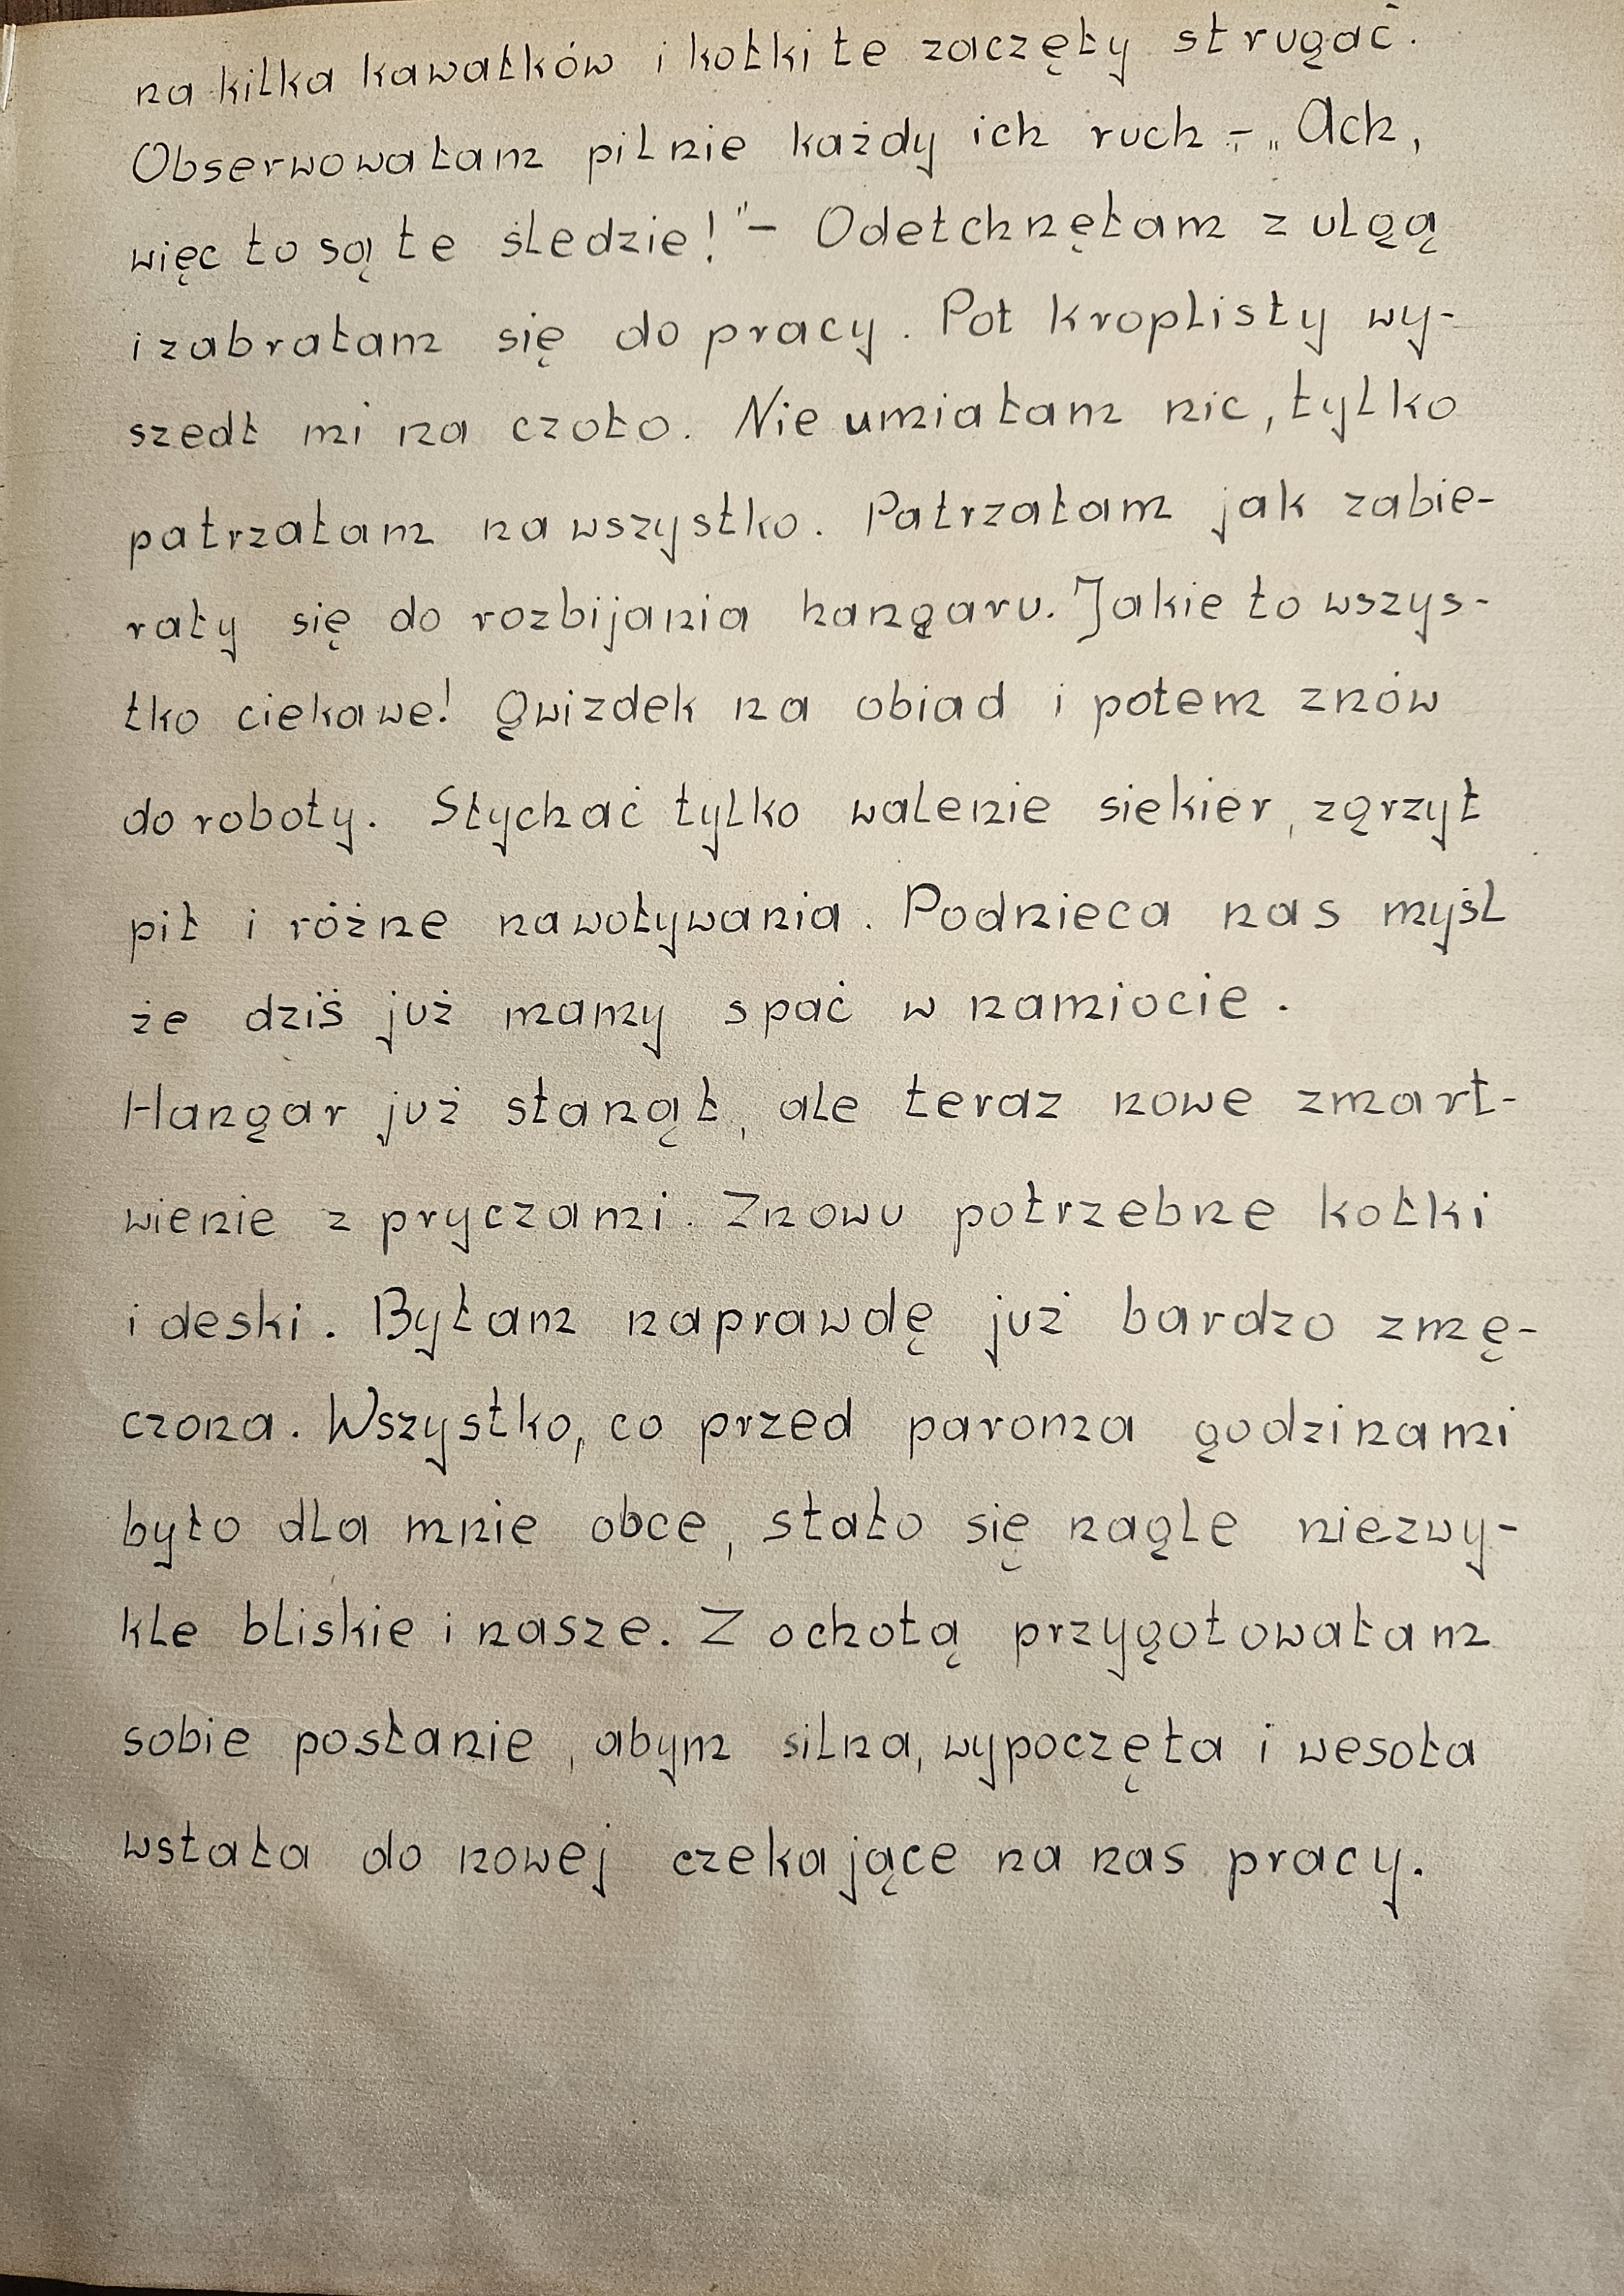 na kilka kawałków i kołki te zaczęły strugać.
Obserwowałam pilnie każdy ich ruch - „Ach,
więc to są te śledzie!" - Odetchnęłam z ulgą
i zabrałam się do pracy. Pot kroplisty wy-
szedł mi na czoło. Nie umiałam nic, tylko
patrzałam na wszystko. Patrzałam jak zabie-
rały się do rozbijania hangaru. Jakie to wszys-
tko ciekawe! Gwizdek na obiad i potem znów
do roboty. Słychać tylko walenie siekier, zgrzyt
pił i różne nawoływania. Podnieca nas myśl
że dziś już mamy spać w namiocie.
Hangar już stanął, ale teraz nowe zmart-
wienie z pryczami. Znowu potrzebne kołki
i deski. Byłam naprawdę już bardzo zmę-
czona. Wszystko, co przed paroma godzinami
było dla mnie obce, stało się nagle niezwy-
kle bliskie i nasze. Z ochotą przygotowałam
sobie posłanie, abym silna, wypoczęta i wesoła
wstała do nowej czekające na nas pracy.